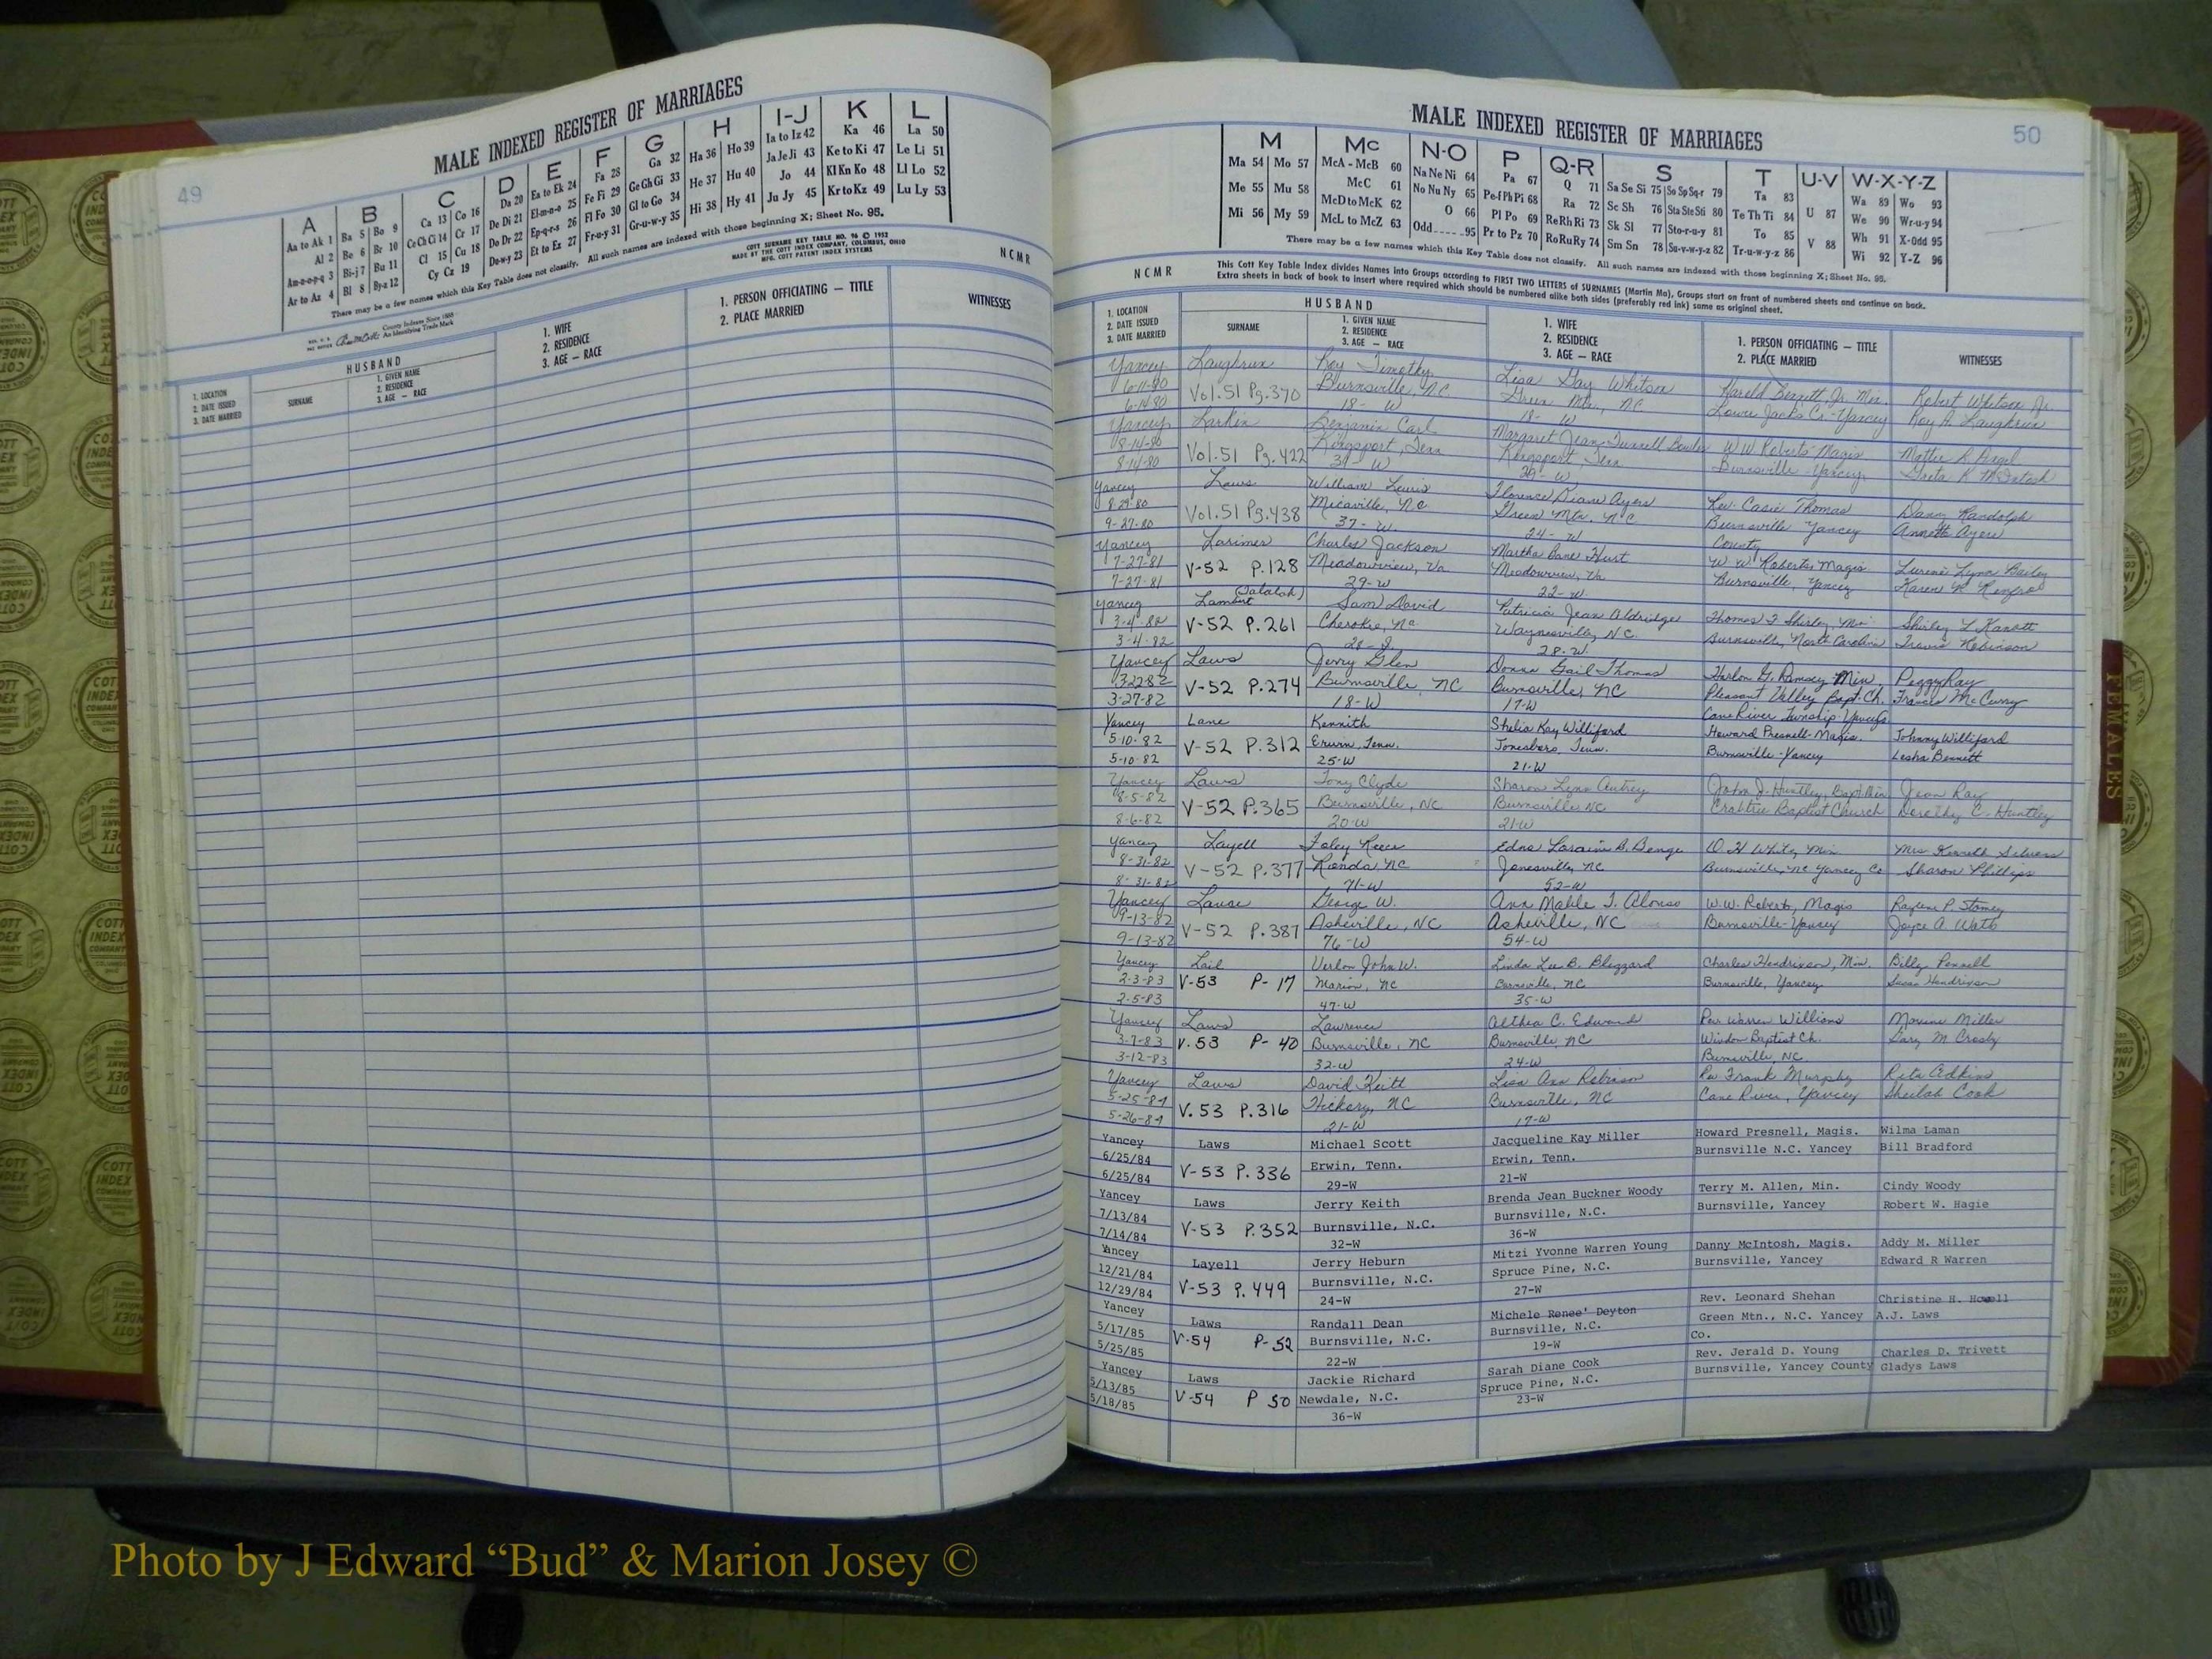 MALE INDEXED REGISTER OF MARRIAGES
49
A
B
C
D
E
F
G
H
I-J
K
L
Aa to Ak 1
Al 2
Am-n-o-p-q 3
Ar to Az 4
Ba 5
Be 6
Bi-j 7
Bl 8
Bo 9
Br 10
Bu 11
By-z 12
Ca 13
Ce Ch Ci 14
Cl 15
Cy Cz 19
Co 16
Cr 17
Cu 18
Da 20
De Di 21
Do Dr 22
Du-w-y 23
Ea to Ek 24
El-m-n-o 25
Ep-q-r-s 26
Et to Ez 27
Fa 28
Fe Fi 29
Fl Fo 30
Fr-u-y 31
Ga 32
Ge Gh Gi 33
Gl to Go 34
Gr-u-w-y 35
Ha 36
He 37
Hi 38
Ho 39
Hu 40
Hy 41
Ia to Iz 42
Ja Je Ji 43
Jo 44
Ju Jy 45
Ka 46
Ke to Ki 47
Kl Kn Ko 48
Kr to Kz 49
La 50
Le Li 51
Ll Lo 52
Lu Ly 53
There may be a few names which this Key Table does not classify. All such names are indexed with those beginning X; Sheet No. 95.
COTT SURNAME KEY TABLE NO. 96 © 1952
MADE BY THE COTT INDEX COMPANY, COLUMBUS, OHIO
MFG. COTT PATENT INDEX SYSTEMS
County Indexes Since 1888
An Identifying Trade Mark
NCMR
1. LOCATION
2. DATE ISSUED
3. DATE MARRIED
HUSBAND
SURNAME
1. GIVEN NAME
2. RESIDENCE
3. AGE — RACE
1. WIFE
2. RESIDENCE
3. AGE — RACE
1. PERSON OFFICIATING — TITLE
2. PLACE MARRIED
WITNESSES
MALE INDEXED REGISTER OF MARRIAGES
50
M
Mc
N-O
P
Q-R
S
T
U-V
W-X-Y-Z
Ma 54
Me 55
Mi 56
Mo 57
Mu 58
My 59
McA - McB 60
McC 61
McD to McK 62
McL to McZ 63
Na Ne Ni 64
No Nu Ny 65
O 66
Odd 95
Pa 67
Pe-f Ph Pi 68
Pl Po 69
Pr to Pz 70
Q 71
Ra 72
Re Rh Ri 73
Ro Ru Ry 74
Sa Se Si 75
Sc Sh 76
Sk Sl 77
Sm Sn 78
So Sp Sq-r 79
Sta Ste Sti 80
Sto-r-u-y 81
Su-v-w-y-z 82
Ta 83
Te Th Ti 84
To 85
Tr-u-w-y-z 86
U 87
V 88
Wa 89
We 90
Wh 91
Wi 92
Wo 93
Wr-u-y 94
X-Odd 95
Y-Z 96
There may be a few names which this Key Table does not classify. All such names are indexed with those beginning X; Sheet No. 95.
NCMR
This Cott Key Table Index divides Names into Groups according to FIRST TWO LETTERS of SURNAMES (Martin Ma), Groups start on front of numbered sheets and continue on back.
Extra sheets in back of book to insert where required which should be numbered alike both sides (preferably red ink) same as original sheet.
1. LOCATION
2. DATE ISSUED
3. DATE MARRIED
HUSBAND
SURNAME
1. GIVEN NAME
2. RESIDENCE
3. AGE — RACE
1. WIFE
2. RESIDENCE
3. AGE — RACE
1. PERSON OFFICIATING — TITLE
2. PLACE MARRIED
WITNESSES
Yancey Laughrun Roy Timothy Lisa Gay Whitson Harold Bennett Jr. Min. Robert Whitson Jr.
6-11-80 Vol.51 Pg.370 Burnsville, NC Green Mtn., NC Lower Jacks Cr.-Yancey Roy A. Laughrun
6-14-80 18- W 18- W
Yancey Larkin Benjamin Carl Margaret Jean W W Roberts Magis
8-14-80 Vol.51 Pg.422 Kingsport, Tenn Kingsport, Tenn Burnsville-Yancey Greta K McIntosh
8-14-80 W 29- W
Yancey Laws William Lewis Florence Diane Ayers Rev. Casie Thomas Danny Randolph
8-29-80 Vol.51 Pg.438 Micaville, NC Green Mtn, NC Burnsville Yancey Annette Ayers
9-27-80 37- W 24- W County
Yancey Lorimer Charles Jackson Martha Jane Hurt W W Roberts, Magis Lurene Lynn Bailey
7-27-81 V-52 P.128 Meadowview, Va Meadowview, Va Burnsville, Yancey Karen R Renfro
7-27-81 29-W 22-W
Yancey Lambert Sam David Patricia Jean Aldridge Thomas F Shirley, Min Shirley L
3-4-82 V-52 P.261 Cherokee, NC Waynesville, N.C. Burnsville, North Carolina Travis Robinson
3-4-82 28-W
Yancey Laws Jerry Glen Donna Gail Thomas Harlon G. Ramsey Min. Peggy Ray
3-22-82 V-52 P.274 Burnsville, NC Burnsville, NC Pleasant Valley Bapt. Ch. Francis McCurry
3-27-82 18-W 17-W Cane River Township-Yancey
Yancey Lane Kennith Shelia Kay Williford Howard Presnell-Magis. Johnny Williford
5-10-82 V-52 P.312 Erwin, Tenn. Jonesboro, Tenn. Burnsville-Yancey Lesha Bennett
5-10-82 25-W 21-W
Yancey Laws Tony Clyde Sharon Lynn Autrey John D. Huntley, Bapt. Min Jean Ray
8-5-82 V-52 P.365 Burnsville, NC Burnsville NC Crabtree Baptist Church Dorothy C. Huntley
8-6-82 20-W 21-W
Yancey Layell Foley Reece Edna Loraine B. Benge D. H White, Min Mrs Kenneth Silvers
8-31-82 V-52 P.377 Ronda, NC Jonesville, NC Burnsville, NC Yancey Co Sharon Phillips
8-31-82 71-W 52-W
Yancey Lause George W. Ann Mable T. Alonso W.W. Roberts, Magis
9-13-82 V-52 P.387 Asheville, NC Asheville, NC Burnsville-Yancey Joyce A. Watts
9-13-82 76-W 54-W
Yancey Lail Verlon John W. Linda Lee B. Blizzard Charles Hendrixson, Min. Billy Pennell
2-3-83 V-53 P-17 Marion, NC Burnsville, NC Burnsville, Yancey Susan Hendrixson
2-5-83 47-W 35-W
Yancey Laws Lawrence Althea C. Edwards Rev Warren Williams Maxine Miller
3-7-83 V.53 P-40 Burnsville, NC Burnsville, NC Windom Baptist Ch. Gary M Crosby
3-12-83 32-W 24-W Burnsville, NC
Yancey Laws David Keith Lisa Ann Robinson Rev Frank Murphy Rita Adkins
5-25-84 V.53 P.316 Hickory, NC Burnsville, NC Cane River, Yancey Sheilah Cook
5-26-84 21-W 17-W
Yancey Laws Michael Scott Jacqueline Kay Miller Howard Presnell, Magis. Wilma Laman
6/25/84 V-53 P.336 Erwin, Tenn. Erwin, Tenn. Burnsville N.C. Yancey Bill Bradford
6/25/84 29-W 21-W
Yancey Laws Jerry Keith Brenda Jean Buckner Woody Terry M. Allen, Min. Cindy Woody
7/13/84 V-53 P.352 Burnsville, N.C. Burnsville, N.C. Burnsville, Yancey Robert W. Hagie
7/14/84 32-W 36-W
Yancey Layell Jerry Heburn Mitzi Yvonne Warren Young Danny McIntosh, Magis. Addy M. Miller
12/21/84 V-53 P.449 Burnsville, N.C. Spruce Pine, N.C. Burnsville, Yancey Edward R Warren
12/29/84 24-W 27-W
Yancey Laws Randall Dean Michele Renee' Deyton Rev. Leonard Shehan Christine H. Howell
5/17/85 V-54 P-52 Burnsville, N.C. Burnsville, N.C. Green Mtn., N.C. Yancey A.J. Laws
5/25/85 22-W 19-W Co.
Yancey Laws Jackie Richard Sarah Diane Cook Rev. Jerald D. Young Charles D. Trivett
5/13/85 V-54 P 50 Newdale, N.C. Spruce Pine, N.C. Burnsville, Yancey County Gladys Laws
5/18/85 36-W 23-W
FEMALES
Photo by J Edward “Bud” & Marion Josey ©